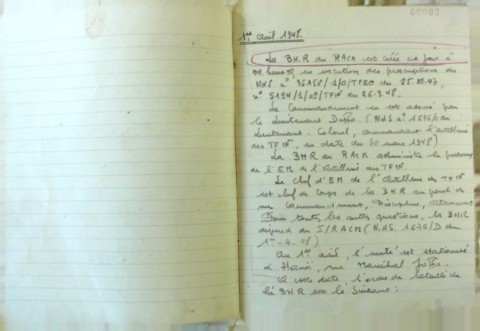 1er Avril 1948.
La BHR du RACM est créée ce jour à
en exécution des prescriptions du
NdS n° 3545 /1/0/TFEO du
n° 5194/1/ /TFIN du 25.3.48.
Le Commandement en est assuré par
le Lieutenant . (NdS n° 1876/ du
Lieutenant-Colonel, commandant l'artillerie
des TFIN, en date du 30 mars 1948)
La BHR du RACM administre le personnel
de l'EM de l'Artillerie des TFIN.
Le chef d'EM de l'artillerie des TFIN
est chef de corps de la BHR au point de
vue Commandement, Discipline,
Pour toutes les autres questions, la BHR
dépend du I/RACM (NdS. 1876/D du
1er - 4 - 48)
Au 1er avril, l'unité est stationnée
à Hanoï, rue Maréchal Joffre.
A cette date l'ordre de bataille de
la BHR est le suivant :